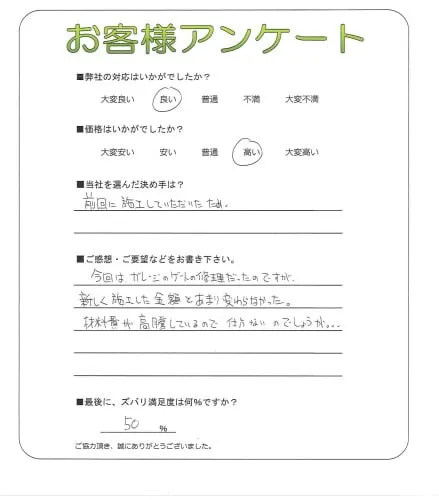 お客様アンケート
■弊社の対応はいかがでしたか？
大変良い 良い 普通 不満 大変不満
■価格はいかがでしたか？
大変安い 安い 普通 高い 大変高い
■当社を選んだ決め手は？
前回に施工していただいたため。
■ご感想・ご要望などをお書き下さい。
今回はガレージのゲートの修理だったのですが、
新しく施工した金額とあまり変わらなかった。
材料費が高騰しているので仕方ないのでしょうが。。。
■最後に、ズバリ満足度は何%ですか？
50 %
ご協力頂き、誠にありがとうございました。